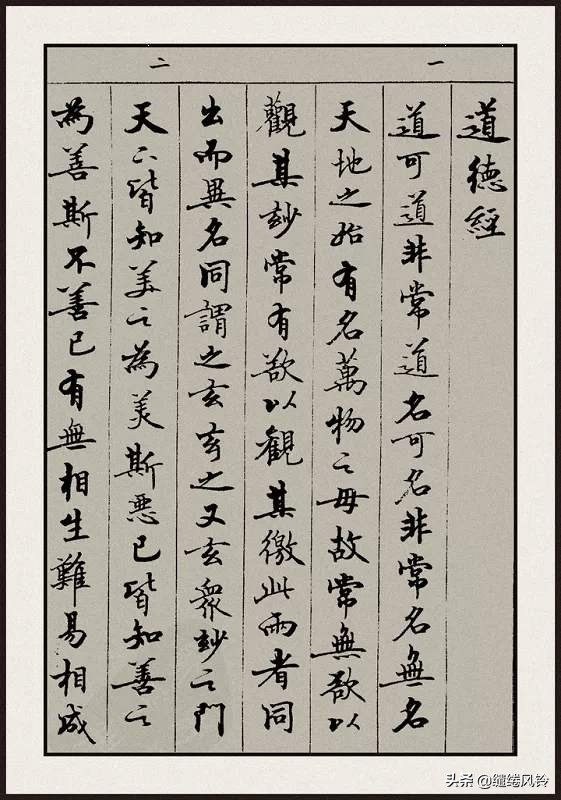 一
二
道德經
道可道非常道名可名非常名無名
天地之始有名萬物之母故常無欲以
觀其玅常有欲以觀其徼此兩者同
出而異名同謂之玄玄之又玄衆玅之門
天下皆知美之為美斯惡已皆知善之
為善斯不善已有無相生難易相成
头条 @缱绻风铃